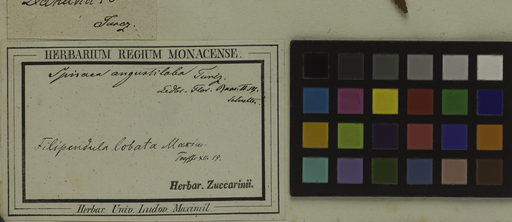 Turcz.
HERBARIUM REGIUM MONACENSE.
Spiraea angustiloba Turcz.
Ledeb. Flor. Ross. II. 17.
Filipendula lobata Maxim.
Herbar. Zuccarinii.
Herbar. Univ. Ludov. Maximil.